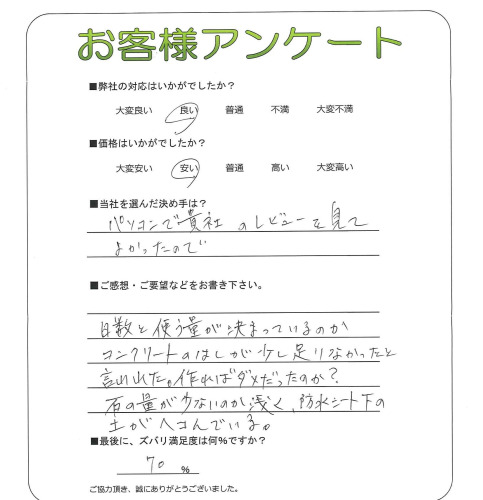 お客様アンケート
■弊社の対応はいかがでしたか？
大変良い 良い 普通 不満 大変不満
■価格はいかがでしたか？
大変安い 安い 普通 高い 大変高い
■当社を選んだ決め手は？
パソコンで貴社のレビューを見て
よかったので
■ご感想・ご要望などをお書き下さい。
日数と使う量が決まっているのか
コンクリートのはしが少し足りなかったと
言われた。作ればダメだったのか？
石の量が少ないのか浅く、防水シート下の
土がヘコんでいる。
■最後に、ズバリ満足度は何%ですか？
70 %
ご協力頂き、誠にありがとうございました。